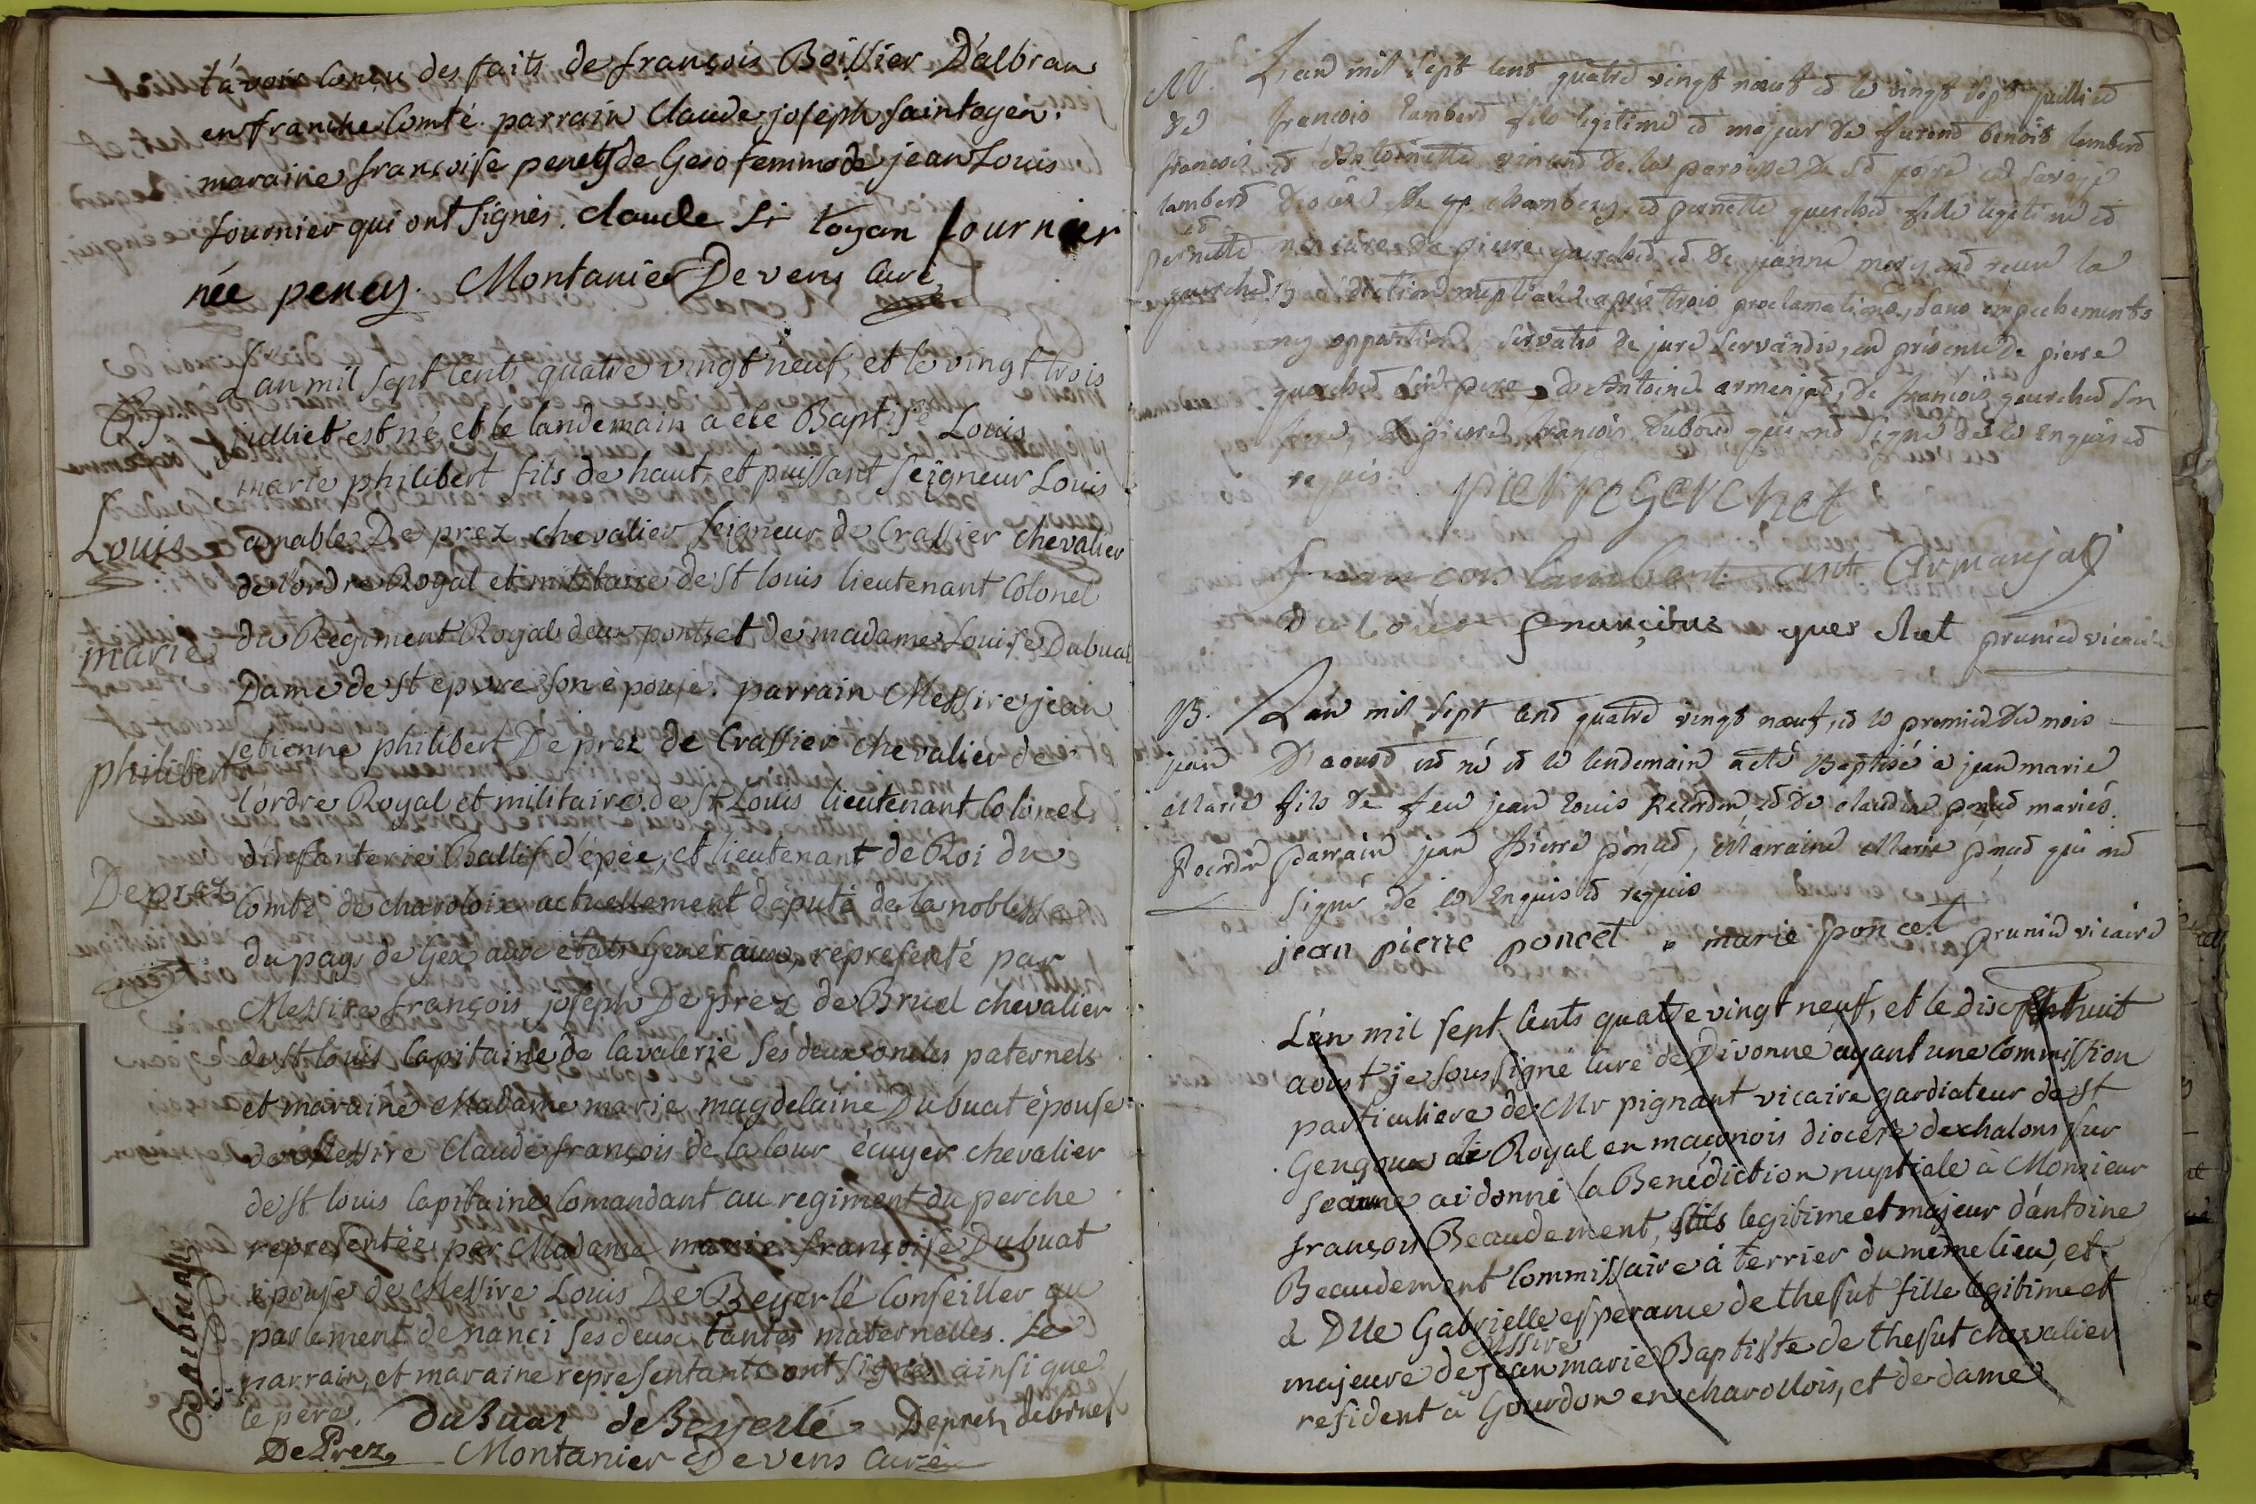 t'avoir conçu des faits de françois Boillier D'albran
en franche Comté. parrain Claude joseph saintoyen.
maraine françoise peney de Gex femme de jean Louis
fournier qui ont signés. claude St toyan fournier
née peney. Montanier De vens Curé
B
L'an mil sept cents quatre vingt neuf, et le vingt trois
julliet est né et le landemain a été Baptisé Louis
marie philibert fils de haut et puissant seigneur Louis
Louis
amable De prez chevalier seigneur de Crassier chevalier
de l'ordre Royal et militaire de St louis lieutenant Colonel
marie
du Regiment Royal deux ponts et de madame Louise Dubuat
Dame de st epvre son épouse. parrain Messire jean
philibert
etienne philibert De prez de Crassier chevalier de
l'ordre Royal et militaire de St Louis lieutenant Colonel
d'infanterie Ballif d'épée, et lieutenant de Roi du
Deprez
Comté de charolois actuellement député de la noblesse
du pays de Gex aux etats Generaux, representé par
Messire françois joseph De prez de Bruel chevalier
de st louis Capitaine de Cavalerie ses deux oncles paternels
et maraine Madame marie magdelaine Dubuat épouse
de Messire Claude françois de la Cour écuyer chevalier
de st louis Capitaine Comandant au regiment du perche
representée par Madame marie françoise Dubuat
épouse de Messire Louis De Beyerlé Conseiller au
parlement de nanci ses deux tantes maternelles. Le
parrain, et maraine representants ont signés ainsi que
le pere. Dubuat de Beyerlé Deprez de bruel
De Prez Montanier De vens Curé
M.
L'an mil sept cent quatre vingt nœuf et le vingt sept juillied
de
françois lamberd fils legitime et majeur de furent benoit lamberd
françois
et d'Antoinette vinand de la paroisse de St en savoye
lamberd
diocése de chambery, et pernette guerched fille legitime et
et
pernette
mineure de pierre guerched et de jeanne mory ont reçu la
guerched
Bénédiction nuptiale après trois proclamations, sans empechements
ny opposition, servatis de jure servandis, en présence de pierre
guerched son pere, de Antoine armenjod, de françois guerched son
frere, de pierre françois Duboud qui ont signé de ce enquis et
requis. pierre Gerchet
françois lambert ant Armanjat
Duboué françois guerchet prunied vicaire
B.
L'an mil sept cend quatre vingt nœuf, et le premier du mois
jean
D'aoust est né et le lendemain a eté Baptisé jean marie
Marie
fils de feu jean louis Recordon et de claudine poncet mariés.
Recordon
parrain jean pierre poncet, Marraine Marie poncet qui ont
signé de ce enquis et requis
jean pierre poncet marie poncet prunied vicaire
L'an mil sept cents quatre vingt neuf, et le dix huit
aoust je soussigné Curé de Divonne ayant une Commission
particuliere de Mr pignant vicaire gardiateur de St
Gengoux de Royal en maçonois diocése de chalons sur
seaune ai donné la Benédiction nuptiale à Monsieur
françois Beaudement, fils legitime et majeur d'antoine
Beaudement Commissaire à terrier du même lieu, et
à Dlle Gabrielle esperance de thesut fille legitime et
Messire
majeure de jean marie Baptiste de thesut chevalier
resident à Gourdon en charollois, et de dame